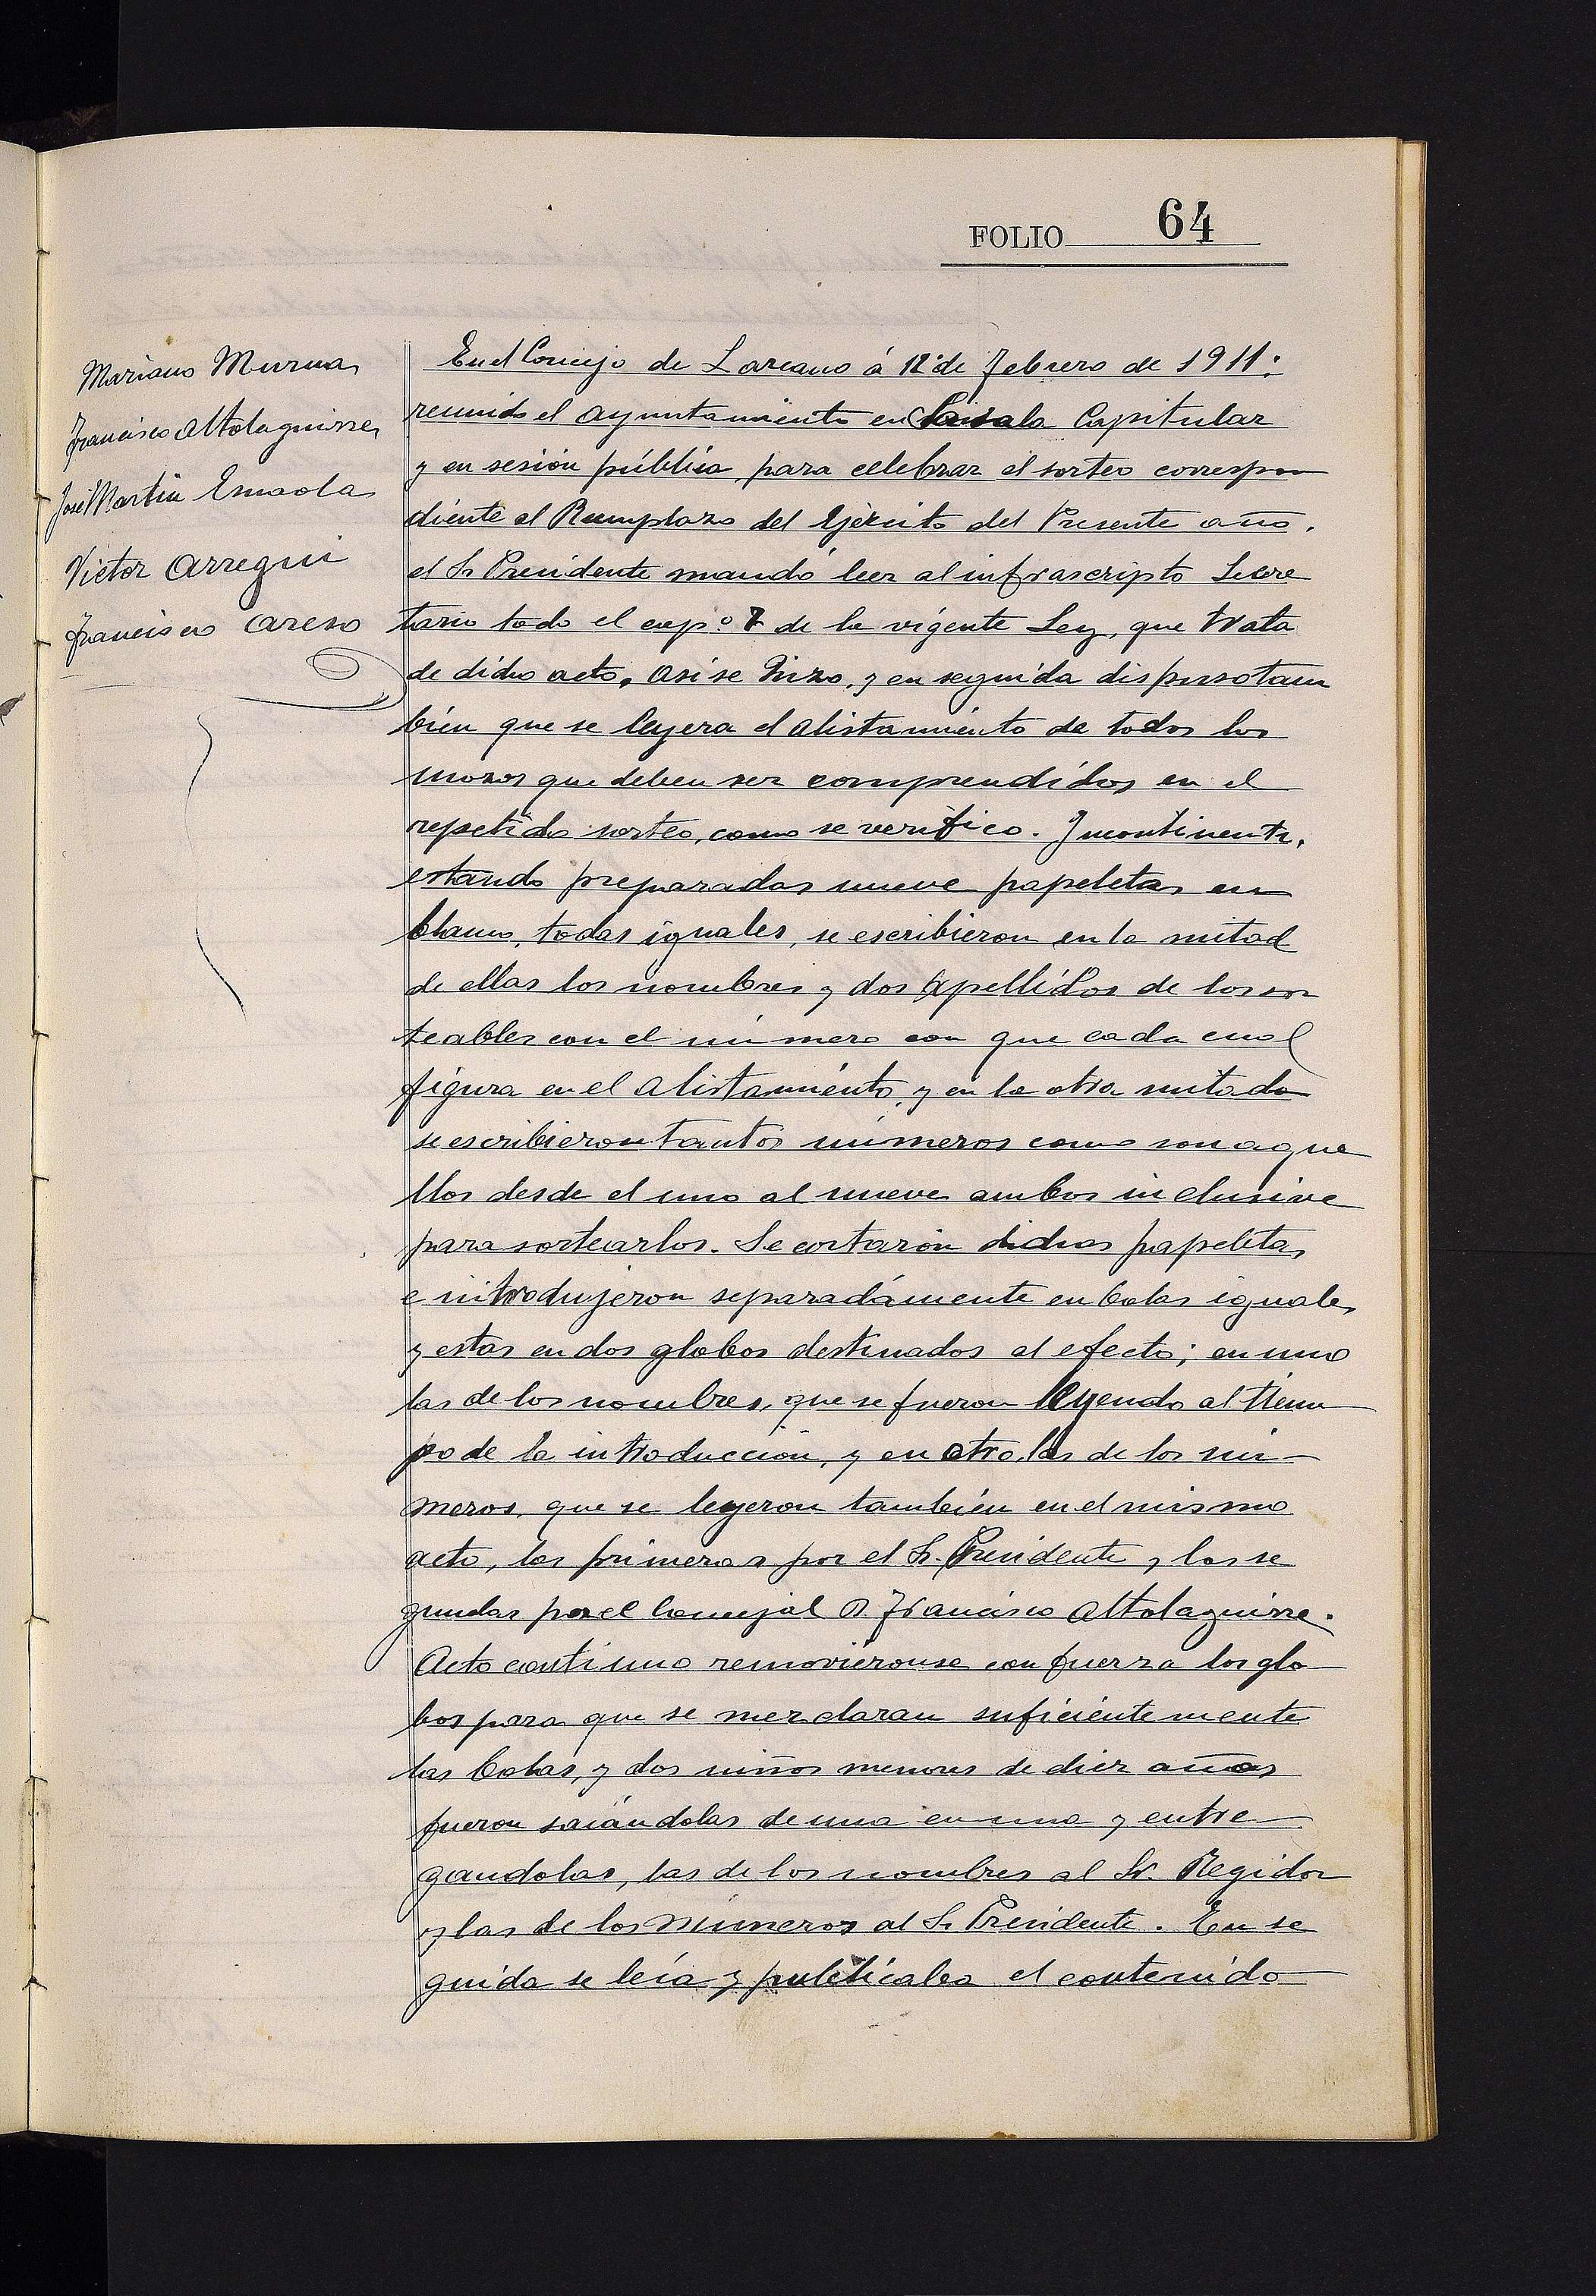 FOLIO 64
Mariano Murua
Francisco Altolaguirre
José Martin Esnaola
Victor Arregui
Francisco Areso
En el Concejo de Lazcano á 12 de Febrero de 1911:
reunido el Ayuntamiento en la sala Capitular
y en sesión pública, para celebrar el sorteo correspon
diente al Reemplazo del Ejército del Presente año.
el Sr Presidente mandó leer al infrascripto Secre
tario todo el cap.º 7 de la vigente Ley, que trata
de dicho acto. Asi se hizo, y en seguida dispuso tam
bién que se leyera el alistamiento de todos los
mozos que deben ser comprendidos en el
repetido sorteo, como se verifico. Incontinenti,
estando preparadas nueve papeletas en
blanco, todas iguales, se escribieron en la mitad
de ellas los nombres y dos apellidos de los sor
teables con el número con que cada cual
figura en el alistamiento, y en la otra mitada
se escribieron tantos números como son aque
llos desde el uno al nueve ambos inclusive
para sortearlos. Se cortarón dichas papeletas
e introdujeron separadámente en bolas iguales
y estas en dos globos destinados al efecto; en uno
las de los nombres, que se fueron leyendo al tiem
po de la introducción, y en otro, las de los nú-
meros, que se leyeron también en el mismo
acto, las primeras por el Sr. Presidente y las se
gundas por el Concejal D. Francisco Altolaguirre.
Acto continuo removiéronse con fuerza los glo
bos para que se mezclaran suficientemente
las bolas, y dos niños menores de diez años
fueron sacándolas de una en una y entre
gandolas, las de los nombres al Sr. Regidor
y las de los números al Sr Presidente. En se
guida se leía y publicaba el contenido